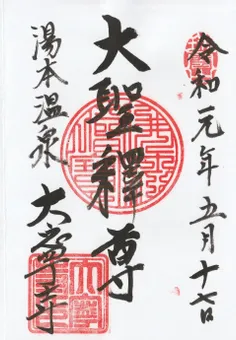 令和元年五月十七日
大聖釋尊
湯本温泉 大寧寺